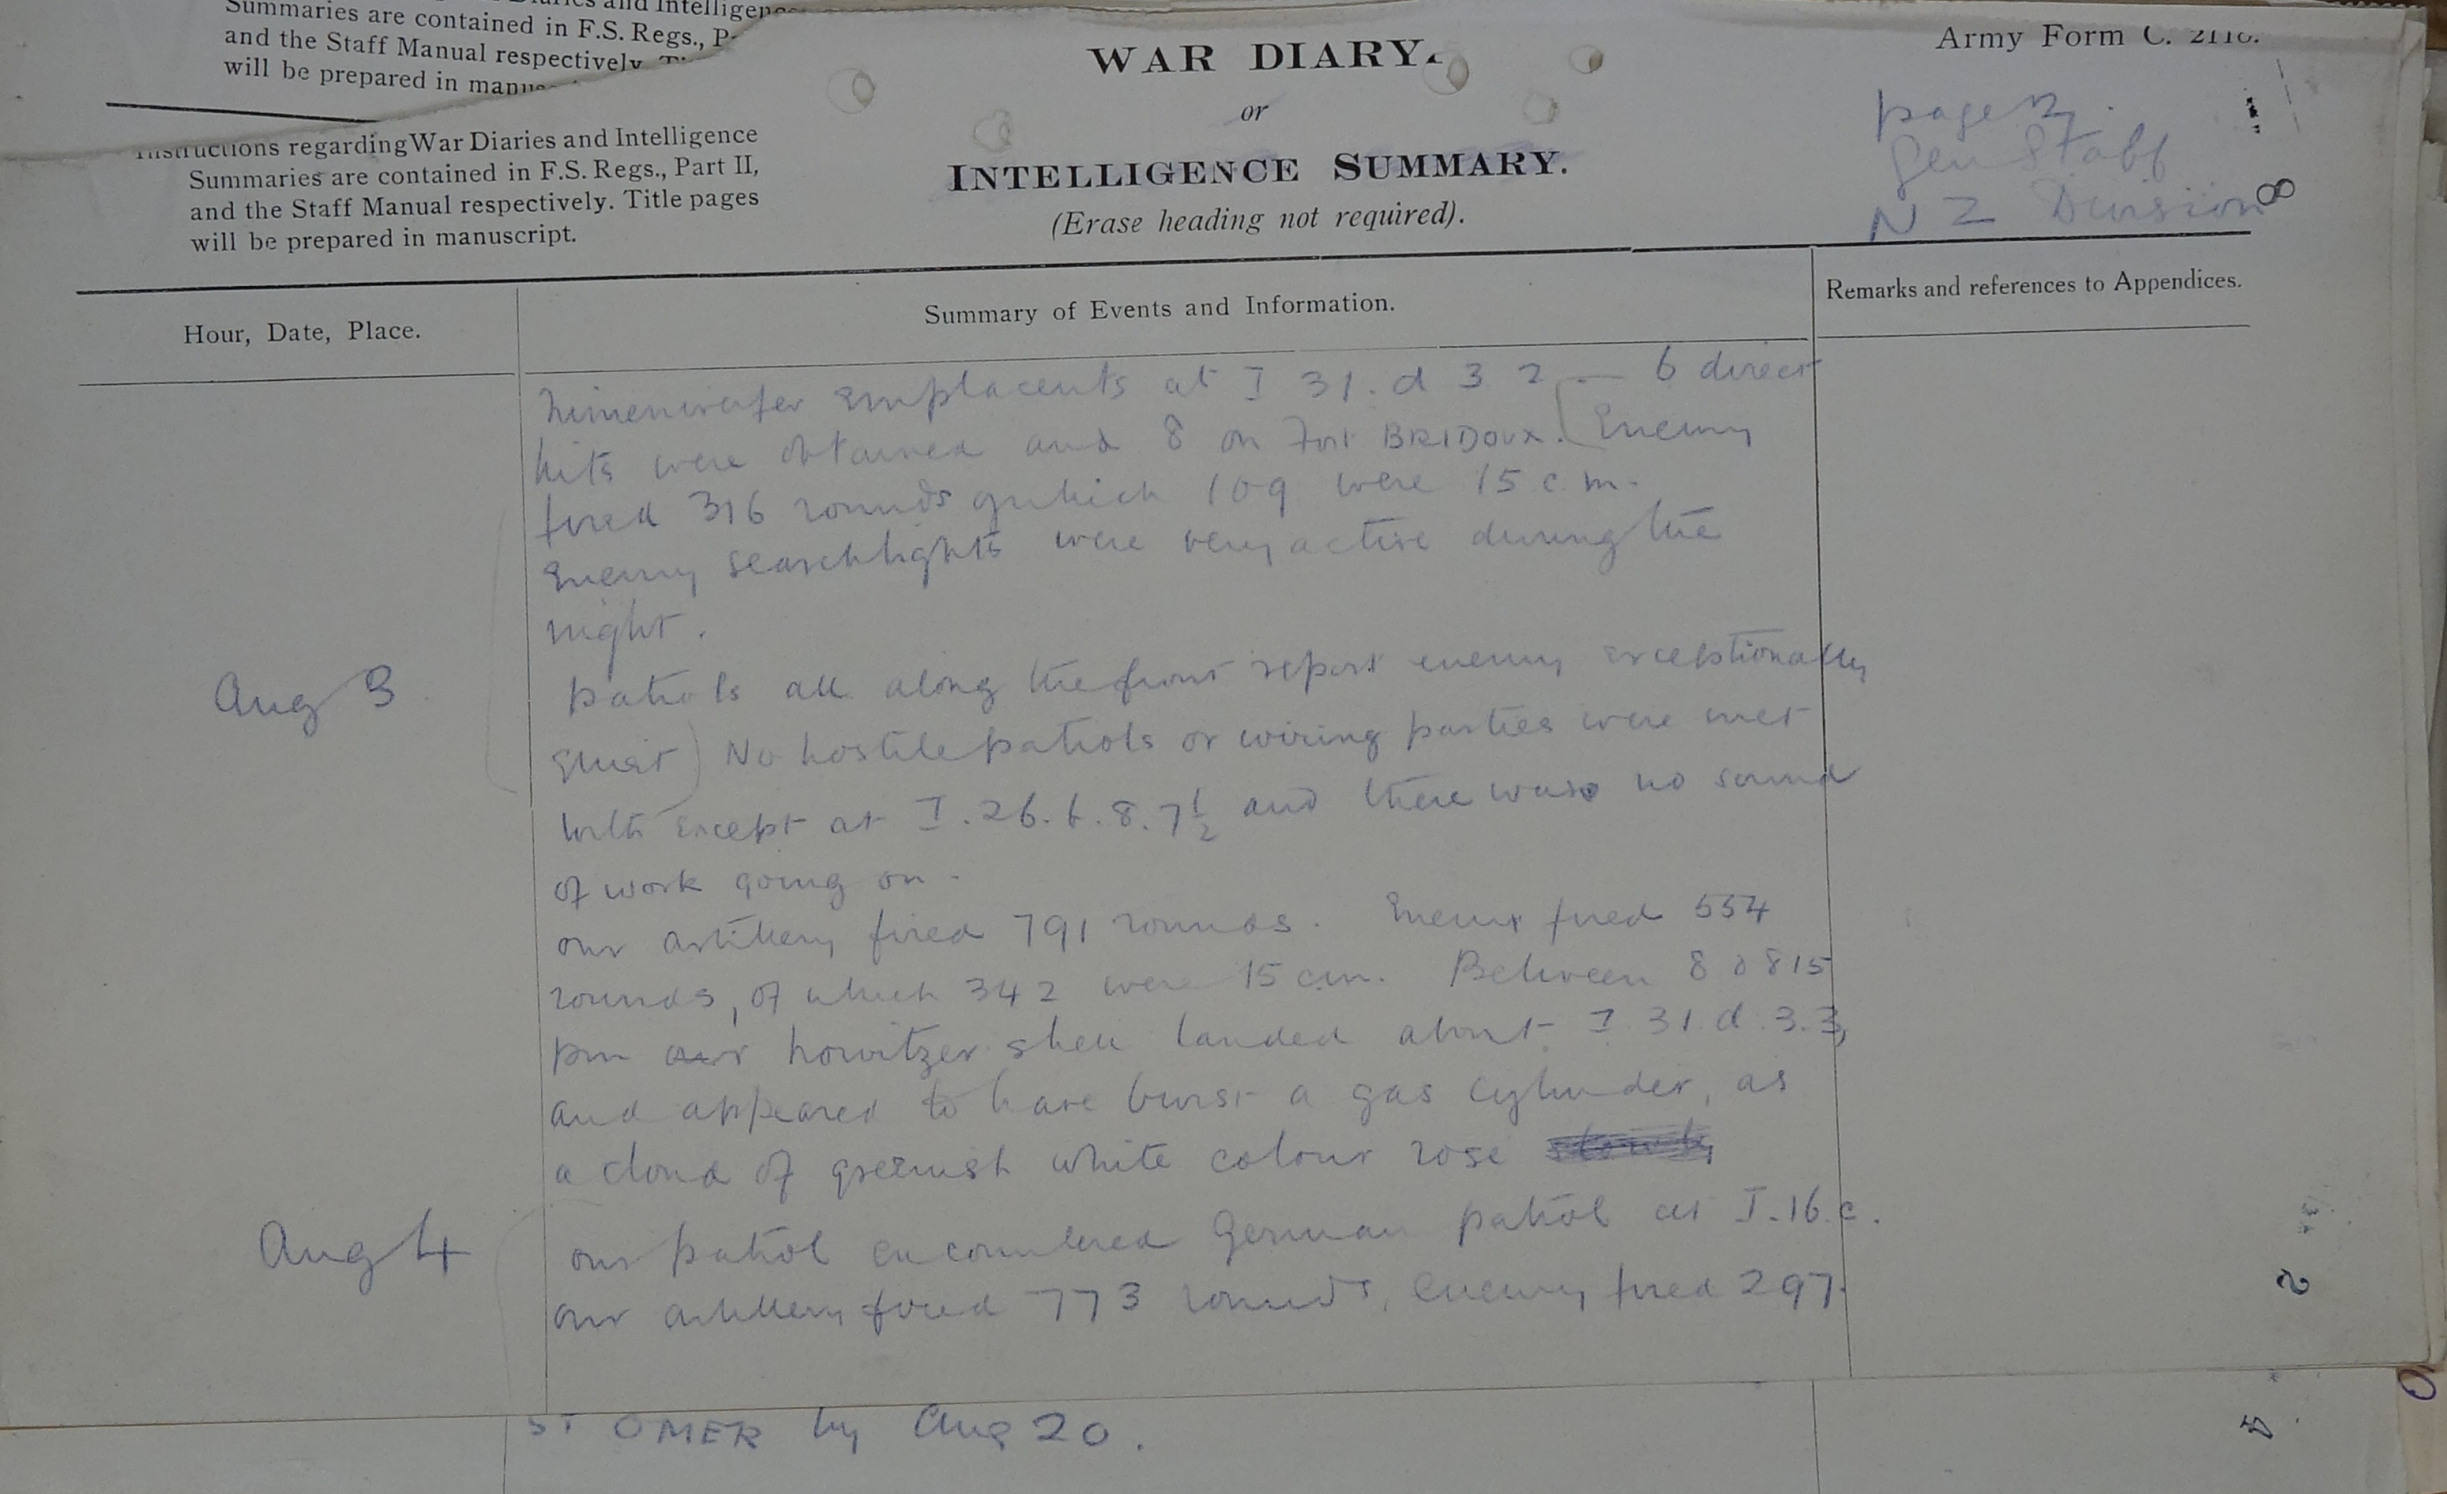 Summaries are contained in F.S. Regs., P
and the Staff Manual respectively
will be prepared in manus
Instructions regarding War Diaries and Intelligence
Summaries are contained in F.S. Regs., Part II,
and the Staff Manual respectively. Title pages
will be prepared in manuscript.
WAR DIARY.
or
INTELLIGENCE SUMMARY.
(Erase heading not required).
Army Form C. 2118.
page 2.
Gen Staff
N Z Division
8
Hour, Date, Place.
Summary of Events and Information.
Remarks and references to Appendices.
minenwerfer Emplacents at I 31. d 3 2 — 6 direct
hits were obtained and 8 on Fort BRIDOUX. [Enemy
fired 316 rounds of which 109 were 15 c.m.
Enemy searchlights were very active during the
night.
Aug 3
patrols all along the front report enemy exceptionally
quiet) No hostile patrols or wiring parties were met
with except at I.26.b.8.7½ and there was no sound
of work going on.
our artillery fired 791 rounds. Enemy fired 554
rounds, of which 342 were 15 cm. Between 8 & 815
pm our howitzer shell landed about I 31 d 3.3,
and appeared to have burst a gas cylinder, as
a cloud of greenish white colour rose
Aug 4
our patrol encountered German patrol at I.16.c.
our artillery fired 773 rounds, enemy fired 297.
2
ST OMER by Aug 20.